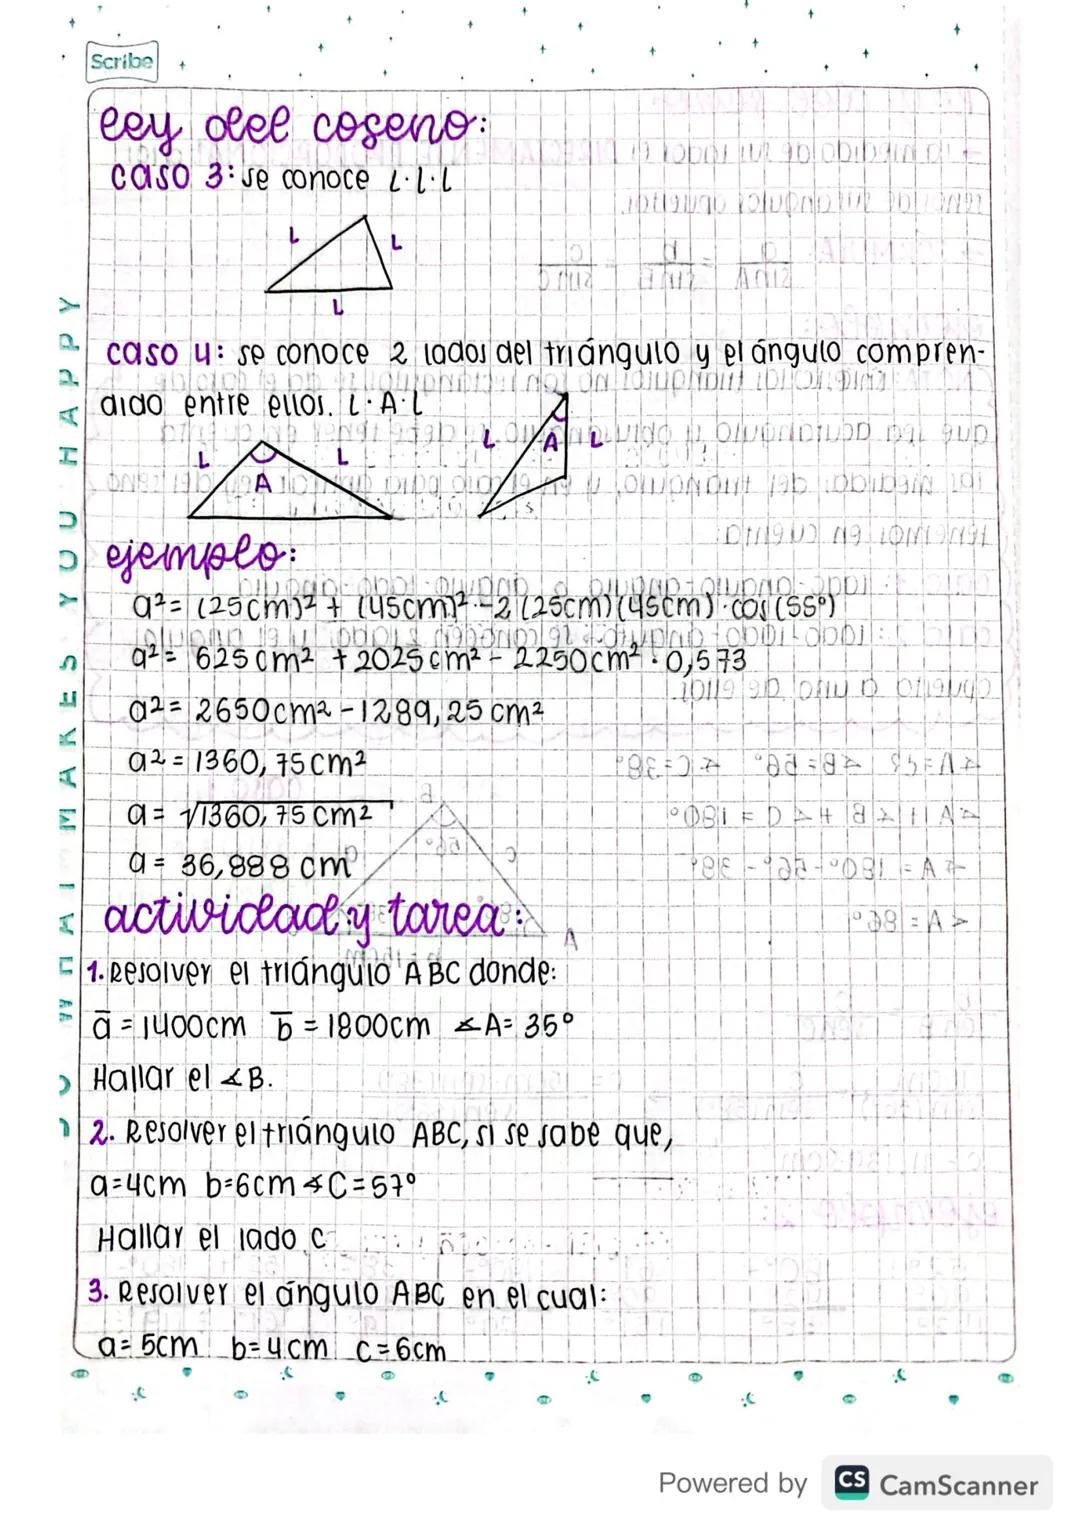 Scribe
ley del coseno:
caso 3: se conoce L.L.L
L
L
L
caso 4: se conoce 2 lados del triángulo y el ángulo compren-
dido entre ellos. L.A.L
L
L
A
L
A
L
ejemplo:
a²= (25cm)² + (45cm)² -2 (25cm)(45cm)·cos(55°)
a²= 625cm² +2025cm² - 2250cm²·0,573
a²= 2650cm² -1289,25cm²
a²=1360,75cm²
a= √1360,75cm²
a= 36,888 cm
actividad y tarea:
1. Resolver el triángulo ABC donde:
a̅ =1400cm b̅ =1800cm ∡A= 35°
Hallar el ∡B.
2. Resolver el triángulo ABC, si se sabe que,
a=4cm b=6cm ∡C=57°
Hallar el lado c
3. Resolver el ángulo ABC en el cual:
a= 5cm b=4cm c=6cm
MAKES YOU HAPPY
Powered by CS CamScanner